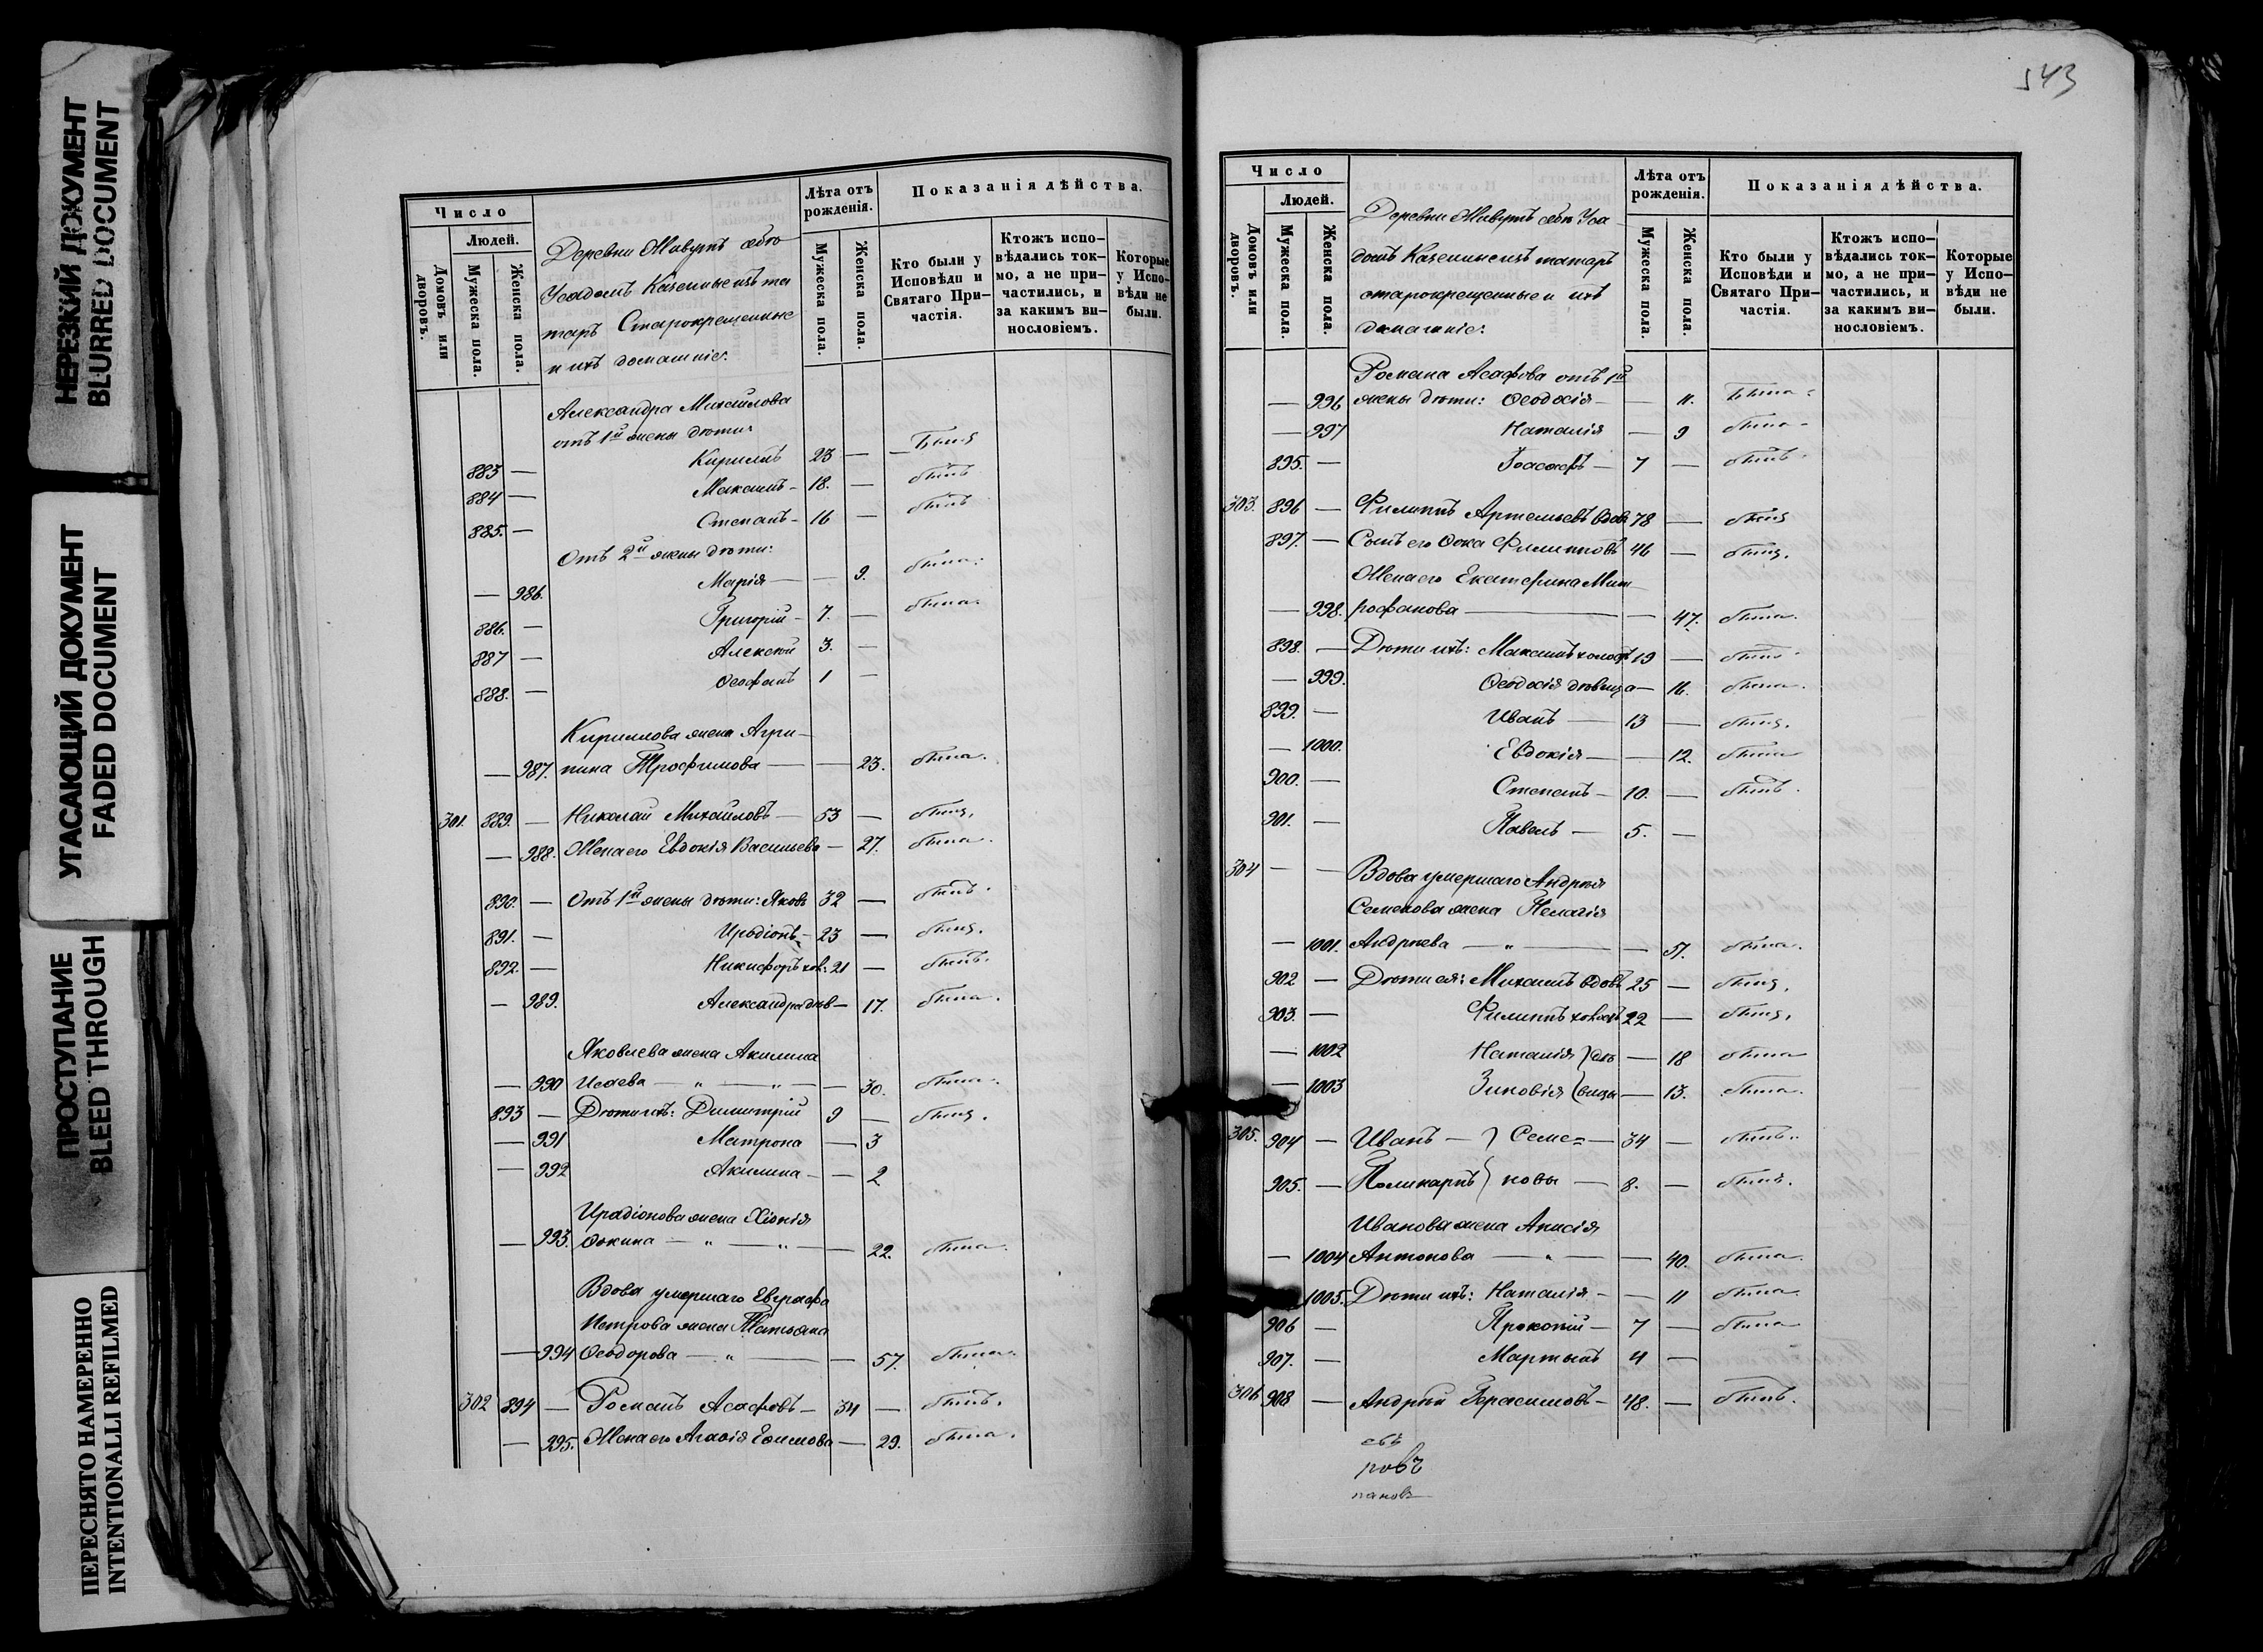 НЕРЕЗКИЙ ДОКУМЕНТ
BLURRED DOCUMENT
УГАСАЮЩИЙ ДОКУМЕНТ
FADED DOCUMENT
ПРОСТУПАНИЕ
BLEED THROUGH
ПЕРЕСНЯТО НАМЕРЕННО
INTENTIONALLI REFILMED
Число
Людей.
Домовъ или дворовъ.
Мужеска пола.
Женска пола.
Деревни
Казенные изъ та
таръ Старокрещенные
и ихъ домашніе:
Лѣта отъ рожденія.
Мужеска пола.
Женска пола.
Показанія дѣйства.
Кто были у Исповѣди и Святаго Причастія.
Ктожъ исповѣдались токмо, а не причастились, и за какимъ винословіемъ.
Которые у Исповѣди не были.
Александра Михайлова
отъ 1й жены дѣти:
883 — Кирилъ 23 — Былъ
884 — Максимъ — 18. — былъ
885. — Степанъ — 16 — былъ
Отъ 2й жены дѣти:
— 986. Марія — — 9. была
886. — Григорій — 7. — была
887 — Алексѣй 3. —
888. — Ѳеофанъ 1 —
Кириллова жена Агри-
— 987. пина Трофимова — — 23. была.
301. 889. — Николай Михайловъ — 53 — былъ
— 988. Жена его Евдокія Васильева — 27. была.
890. — Отъ 1й жены дѣти: Яковъ 32 — былъ.
891. — Иродіонъ — 23 — былъ.
892. — Никифоръ хол. 21 — былъ.
— 989. Александра дѣв — 17. была.
Яковлева жена Акилина
— 990 Исаева — „ — „ — — 30. была.
893 — Дѣти ихъ: Димитрій 9 — былъ.
— 991 Матрона — 3
— 992 Акилина — — 2
Ирадіонова жена Хіонія
— 993. Ѳокина — „ — „ — — 22. была.
Вдова умершаго Евграфа
Петрова жена Татьяна
— 994 Ѳеодорова — „ — — 57. была.
302 894 — Романъ Асафовъ — 34 — былъ.
— 995. Жена его Агафія Ефимова — 29. была.
543
Число
Людей.
Домовъ или дворовъ.
Мужеска пола.
Женска пола.
Деревни
домъ Казенные изъ татаръ
старокрещенные и ихъ
домашніе:
Лѣта отъ рожденія.
Мужеска пола.
Женска пола.
Показанія дѣйства.
Кто были у Исповѣди и Святаго Причастія.
Ктожъ исповѣдались токмо, а не причастились, и за какимъ винословіемъ.
Которые у Исповѣди не были.
Романа Асафова отъ 1й
— 996 жены дѣти: Ѳеодосія — — 11. Была
— 997 Наталія — 9 была
895. — Іоасафъ — 7 — былъ.
303. 896 — Филиппъ Артемьевъ вдовъ 78 — былъ
897. — Сынъ его Ѳока Филипповъ 46 — былъ.
Жена его Екатерина Мит
— 998. рофанова — — 47. была.
898. — Дѣти ихъ: Максимъ холостъ 19 — былъ
— 999. Ѳеодосія дѣвица — 16. была.
899. — Иванъ — 13 — былъ.
— 1000. Евдокія — — 12. была
900. — Степанъ — 10. — былъ.
901. — Павелъ — 5. —
304 — — Вдова умершаго Андрея
Семенова жена Пелагія
— 1001. Андреева — „ — — 51. была.
902 — Дѣти ея: Михаилъ вдовъ 25 — былъ.
903. — Филиппъ холостъ 22 — былъ.
— 1002 Наталія } дѣ — 18 была
— 1003 Зиновія } вицы — 13. была.
305. 904 — Иванъ — } Семе= — 34 — былъ.
905. — Поликарпъ } новы — 8. — былъ.
Иванова жена Анисія
— 1004 Антонова — „ — — 40. была.
1005. Дѣти ихъ: Наталія — — 11 была.
906 — Прокопій — 7 — была
907. — Мартынъ 4 —
306 908 — Андрей Герасимовъ — 48. — былъ.